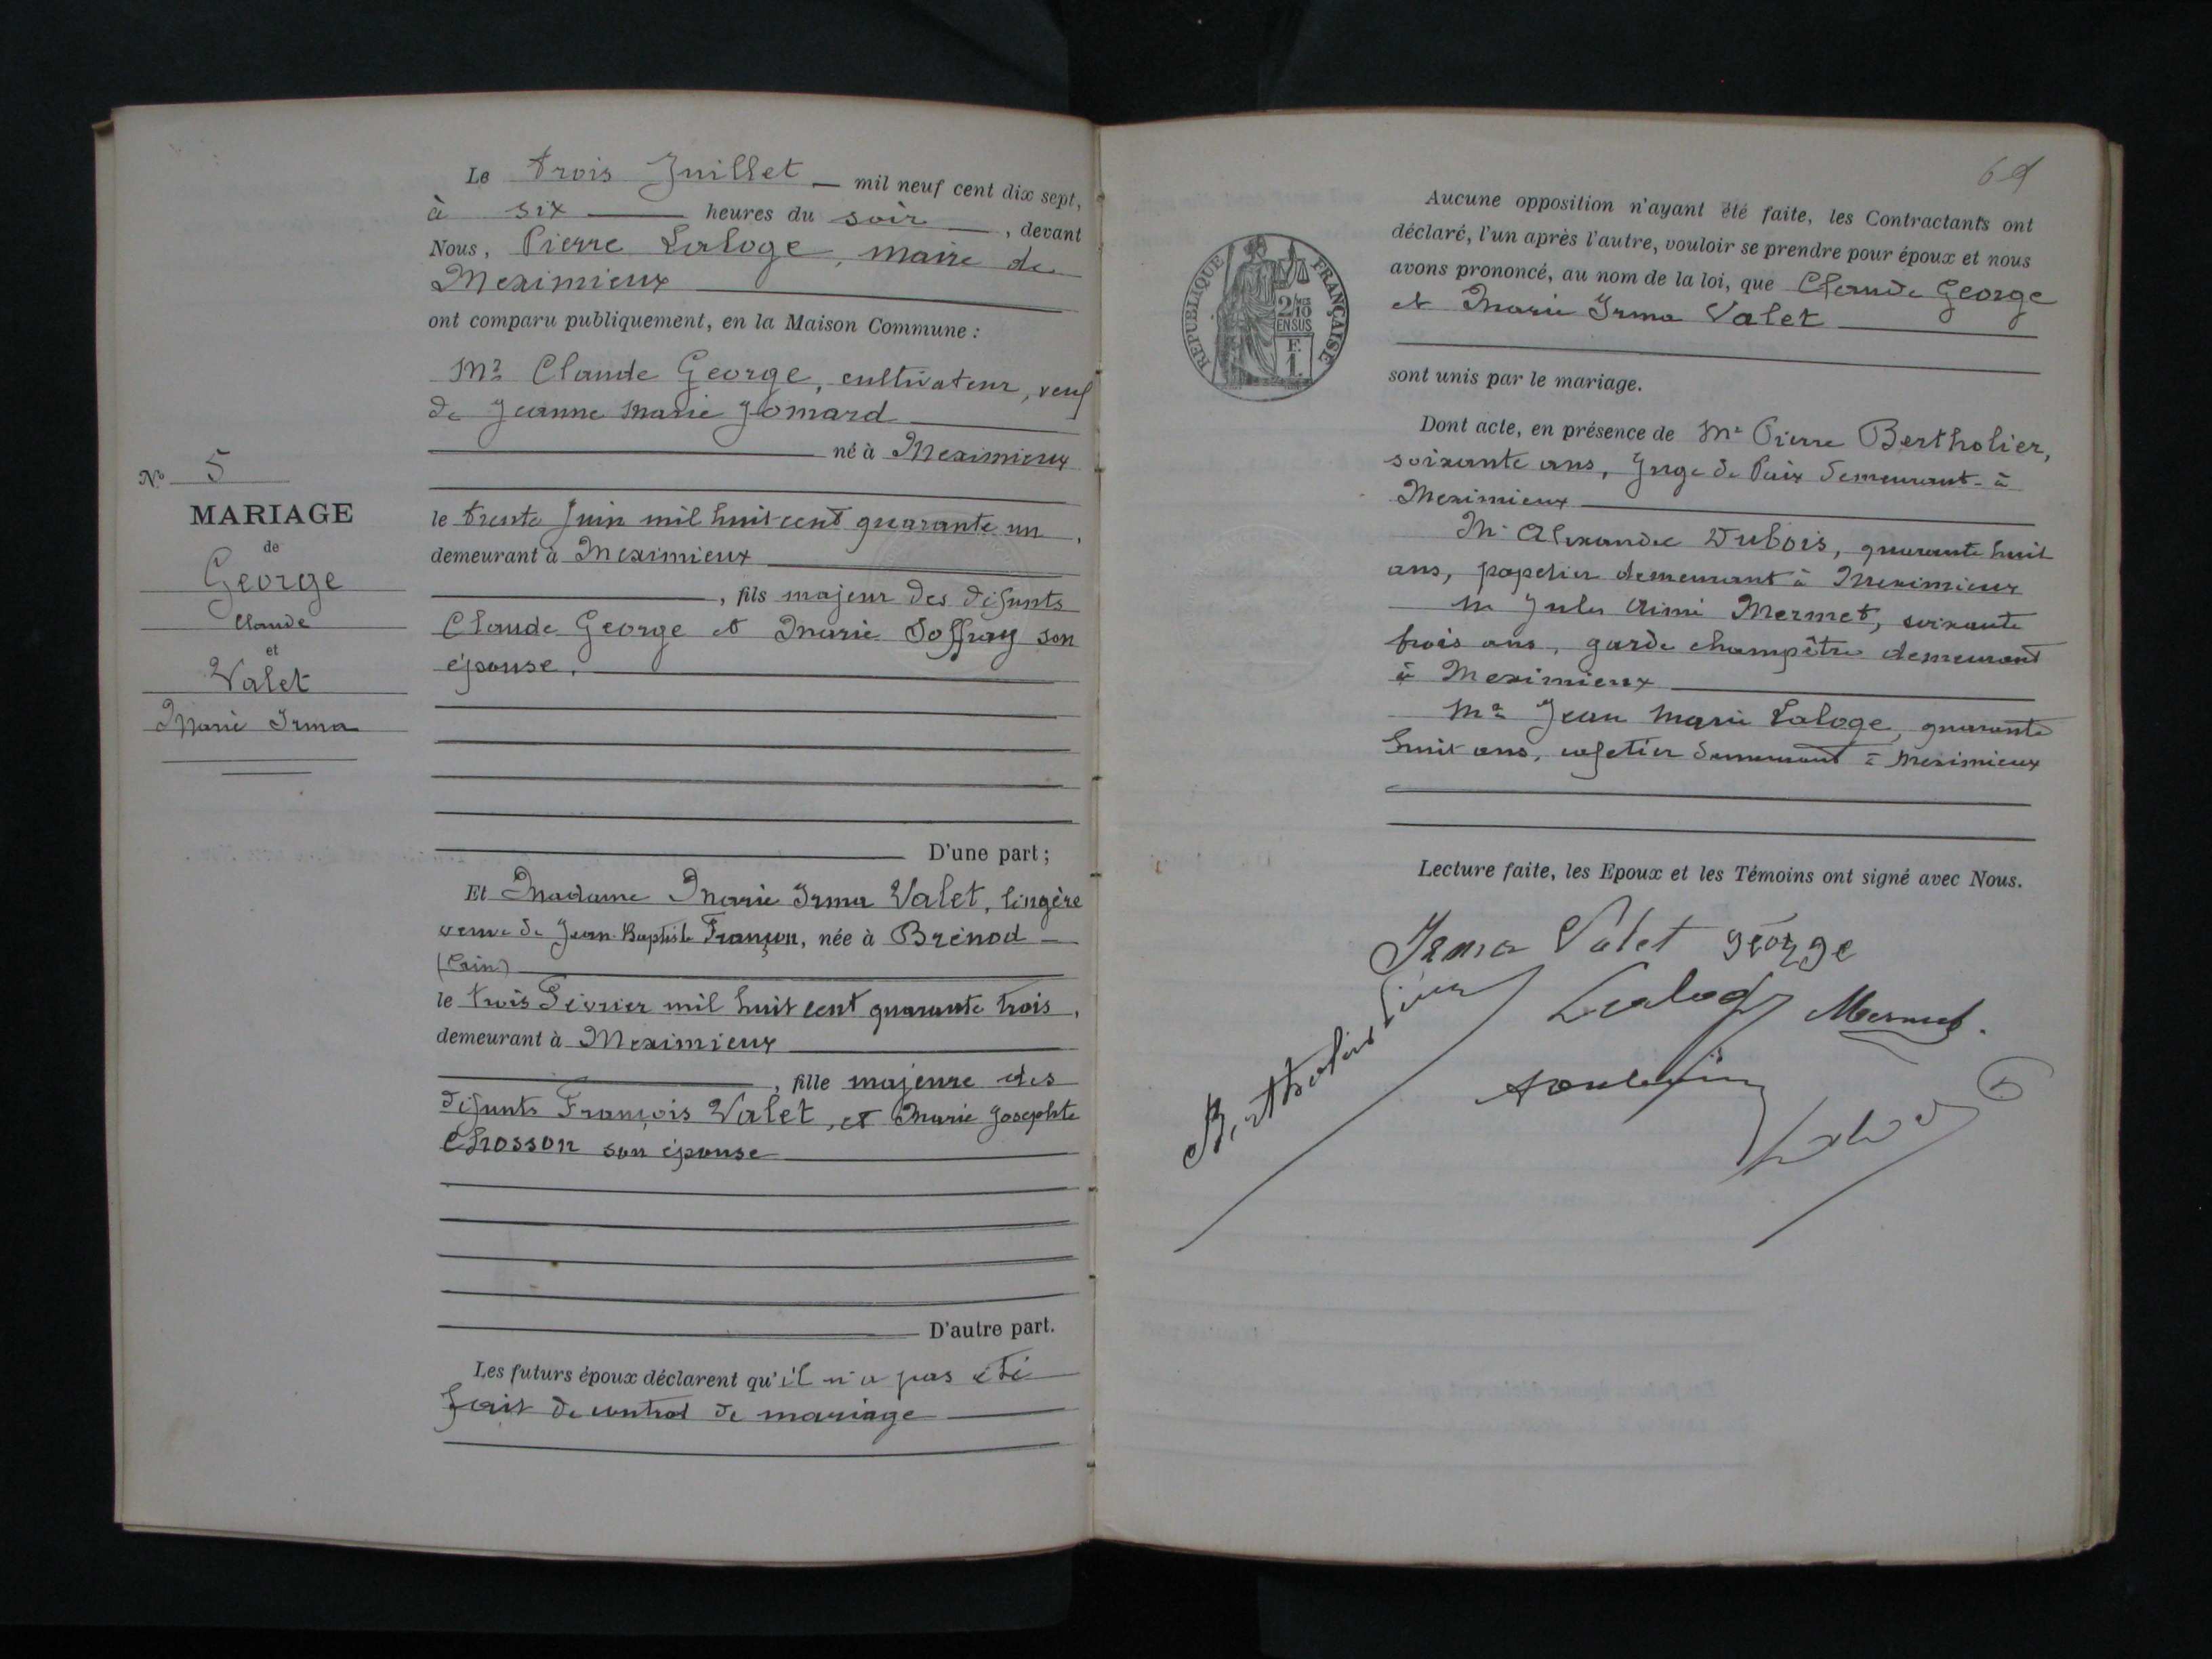 Le trois Juillet mil neuf cent dix sept,
à six heures du soir, devant
Nous, Pierre Laloge, maire de
Meximieux
ont comparu publiquement, en la Maison Commune :
Mr Claude George, cultivateur, veuf
de Jeanne Marie Jomard
né à Meximieux
le trente Juin mil huit cent quarante un,
demeurant à Meximieux
, fils majeur des défunts
Claude George et Marie Soffray son
épouse.
D'une part ;
Et Madame Marie Irma Valet, lingère
veuve de Jean-Baptiste Françon, née à Brénod
(Ain)
le trois Février mil huit cent quarante trois,
demeurant à Meximieux
, fille majeure des
défunts François Valet, et Marie Josephte
Chosson son épouse
D'autre part.
Les futurs époux déclarent qu'il n'a pas été
fait de contrat de mariage
No 5
MARIAGE
de
George
Claude
et
Valet
Marie Irma
REPUBLIQUE FRANÇAISE
2/10
EN SUS
F.
1.
Aucune opposition n'ayant été faite, les Contractants ont
déclaré, l'un après l'autre, vouloir se prendre pour époux et nous
avons prononcé, au nom de la loi, que Claude George
et Marie Irma Valet
sont unis par le mariage.
Dont acte, en présence de Mr Pierre Bertholier,
soixante ans, Juge de Paix demeurant à
Meximieux
Mr Alexandre Dubois, quarante huit
ans, papetier demeurant à Meximieux
Mr Jules Aimé Mermet, soixante
trois ans, garde champêtre demeurant
à Meximieux
Mr Jean Marie Laloge, quarante
huit ans, cafetier demeurant à Meximieux
Lecture faite, les Epoux et les Témoins ont signé avec Nous.
Irma Valet george
Laloge Mermet